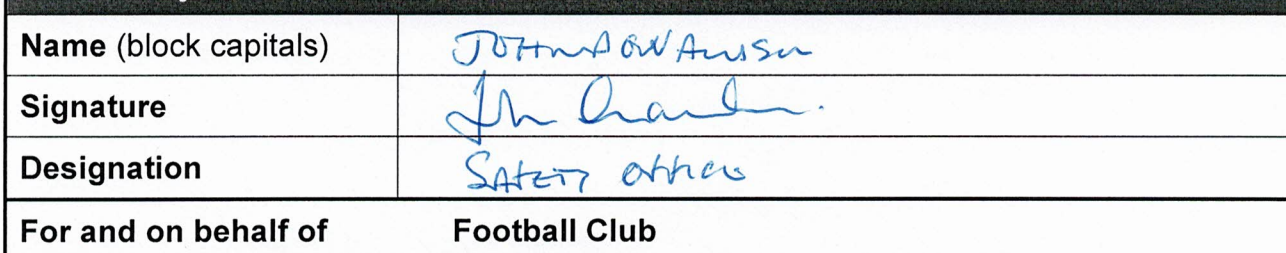 Name (block capitals) JOHN
Signature John
Designation SAFETY OFFICER
For and on behalf of Football Club